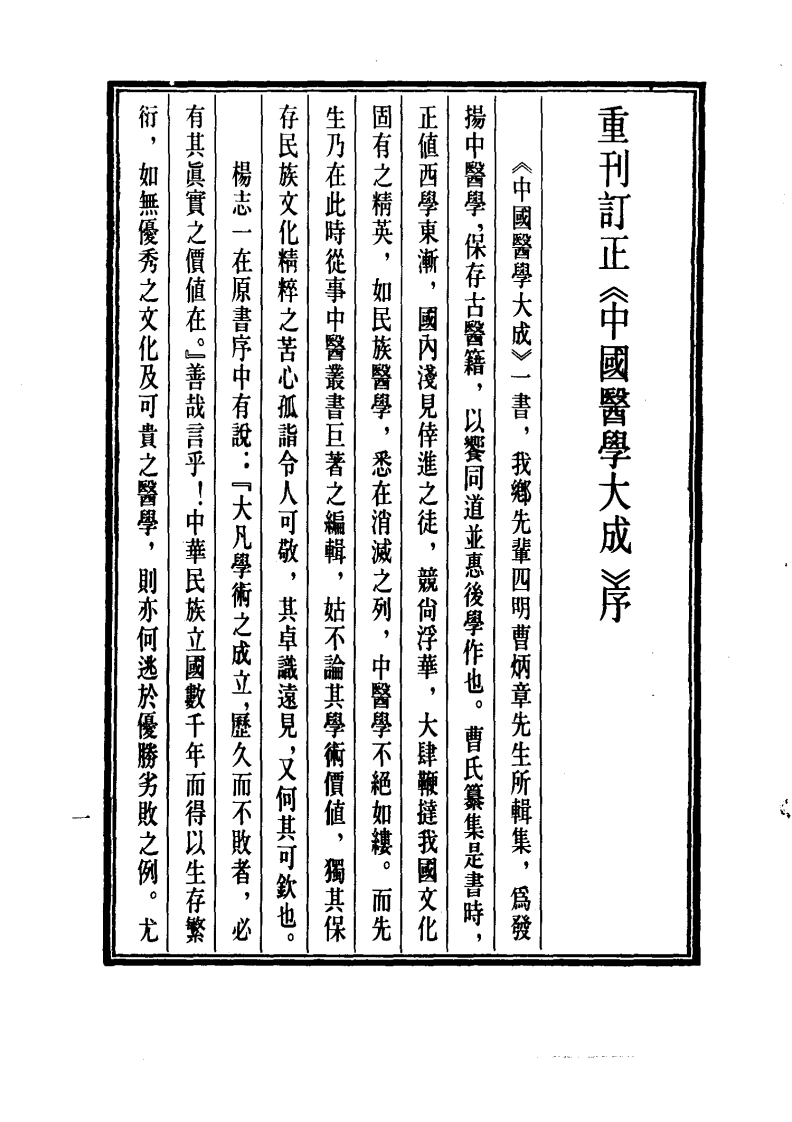 重刊訂正《中國醫學大成》序
《中國醫學大成》一書，我鄉先輩四明曹炳章先生所輯集，爲發
揚中醫學，保存古醫籍，以饗同道並惠後學作也。曹氏纂集是書時，
正值西學東漸，國內淺見倖進之徒，競尙浮華，大肆鞭撻我國文化
固有之精英，如民族醫學，悉在消滅之列，中醫學不絕如縷。而先
生乃在此時從事中醫叢書巨著之編輯，姑不論其學術價値，獨其保
存民族文化精粹之苦心孤詣令人可敬，其卓識遠見，又何其可欽也。
楊志一在原書序中有說：『大凡學術之成立，歷久而不敗者，必
有其眞實之價値在。』善哉言乎！中華民族立國數千年而得以生存繁
衍，如無優秀之文化及可貴之醫學，則亦何逃於優勝劣敗之例。尤
一